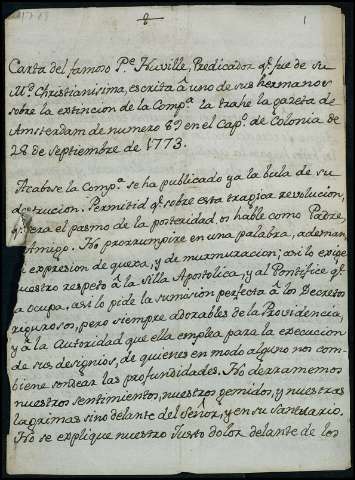 1
Carta del famoso P.e Nuville, Predicador q.e fue de su
M.d Christianisima, escrita â uno de sus hermanos
sobre la extincion de la Comp.a la trahe la gazeta de
Amsterdam de numero 89 en el Cap.o de Colonia de
28 de septiembre de 1773.
Acabose la Comp.a se ha publicado ya la bula de su
destrucion. Permitid q.e sobre esta tragica revolucion,
q.e sera el pasmo de la posteridad, os hable como Padre,
Amigo. No prorrumpire en una palabra, ademan
expresion de quexa, y de murmuracion; asi lo exige
nuestro respeto â la Silla Apostolica, y al Pontifice q.e
la ocupa, asi lo pide la sumision perfecta â los Decretos
rigurosos, pero siempre adorables de la Providencia,
y â la Autoridad que ella emplea para la execucion
de sus designios, de quienes en modo alguno nos com-
biene sondear las profundidades. No derramemos
nuestros sentimientos, nuestros gemidos, y nuestras
lagrimas sino delante del Señor, y en su Santuario.
No se explique nuestro Justo dolor delante de los